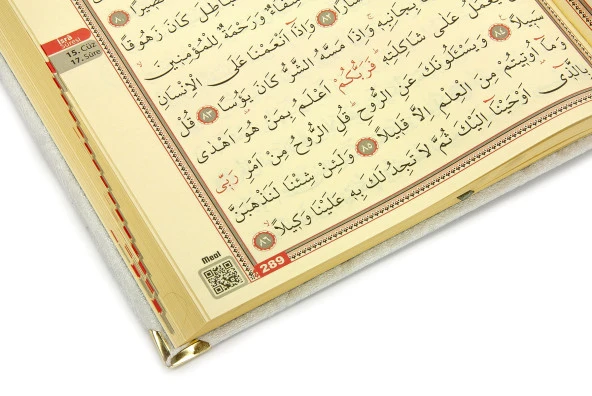 نَصِيرًا ﴿٨٠﴾
كَانَ زَهُوقًا
شِفَٓاءٌ وَرَحْمَةٌ لِلْمُؤْمِنِينَ
﴿٨٢﴾ وَاِذَٓا اَنْعَمْنَا عَلَى الْاِنْسَانِ
بِجَانِبِه۪ وَاِذَا مَسَّهُ الشَّرُّ كَانَ يَؤُ۫سًا ﴿٨٣﴾ قُلْ
يَعْمَلُ عَلٰى شَاكِلَتِه۪ فَرَبُّكُمْ اَعْلَمُ بِمَنْ هُوَ اَهْدٰى
سَب۪يلًا ﴿٨٤﴾ وَيَسْـَٔلُونَكَ عَنِ الرُّوحِ قُلِ الرُّوحُ مِنْ اَمْرِ رَبّ۪ى
وَمَٓا اُو۫ت۪يتُمْ مِنَ الْعِلْمِ اِلَّا قَل۪يلًا ﴿٨٥﴾ وَلَئِنْ شِئْنَا لَنَذْهَبَنَّ
بِالَّذ۪ٓى اَوْحَيْنَٓا اِلَيْكَ ثُمَّ لَا تَجِدُ لَكَ بِه۪ عَلَيْنَا وَك۪يلًا ﴿٨٦﴾
İsrâ
Sûresi
15. Cüz
17. Sûre
Meal
289